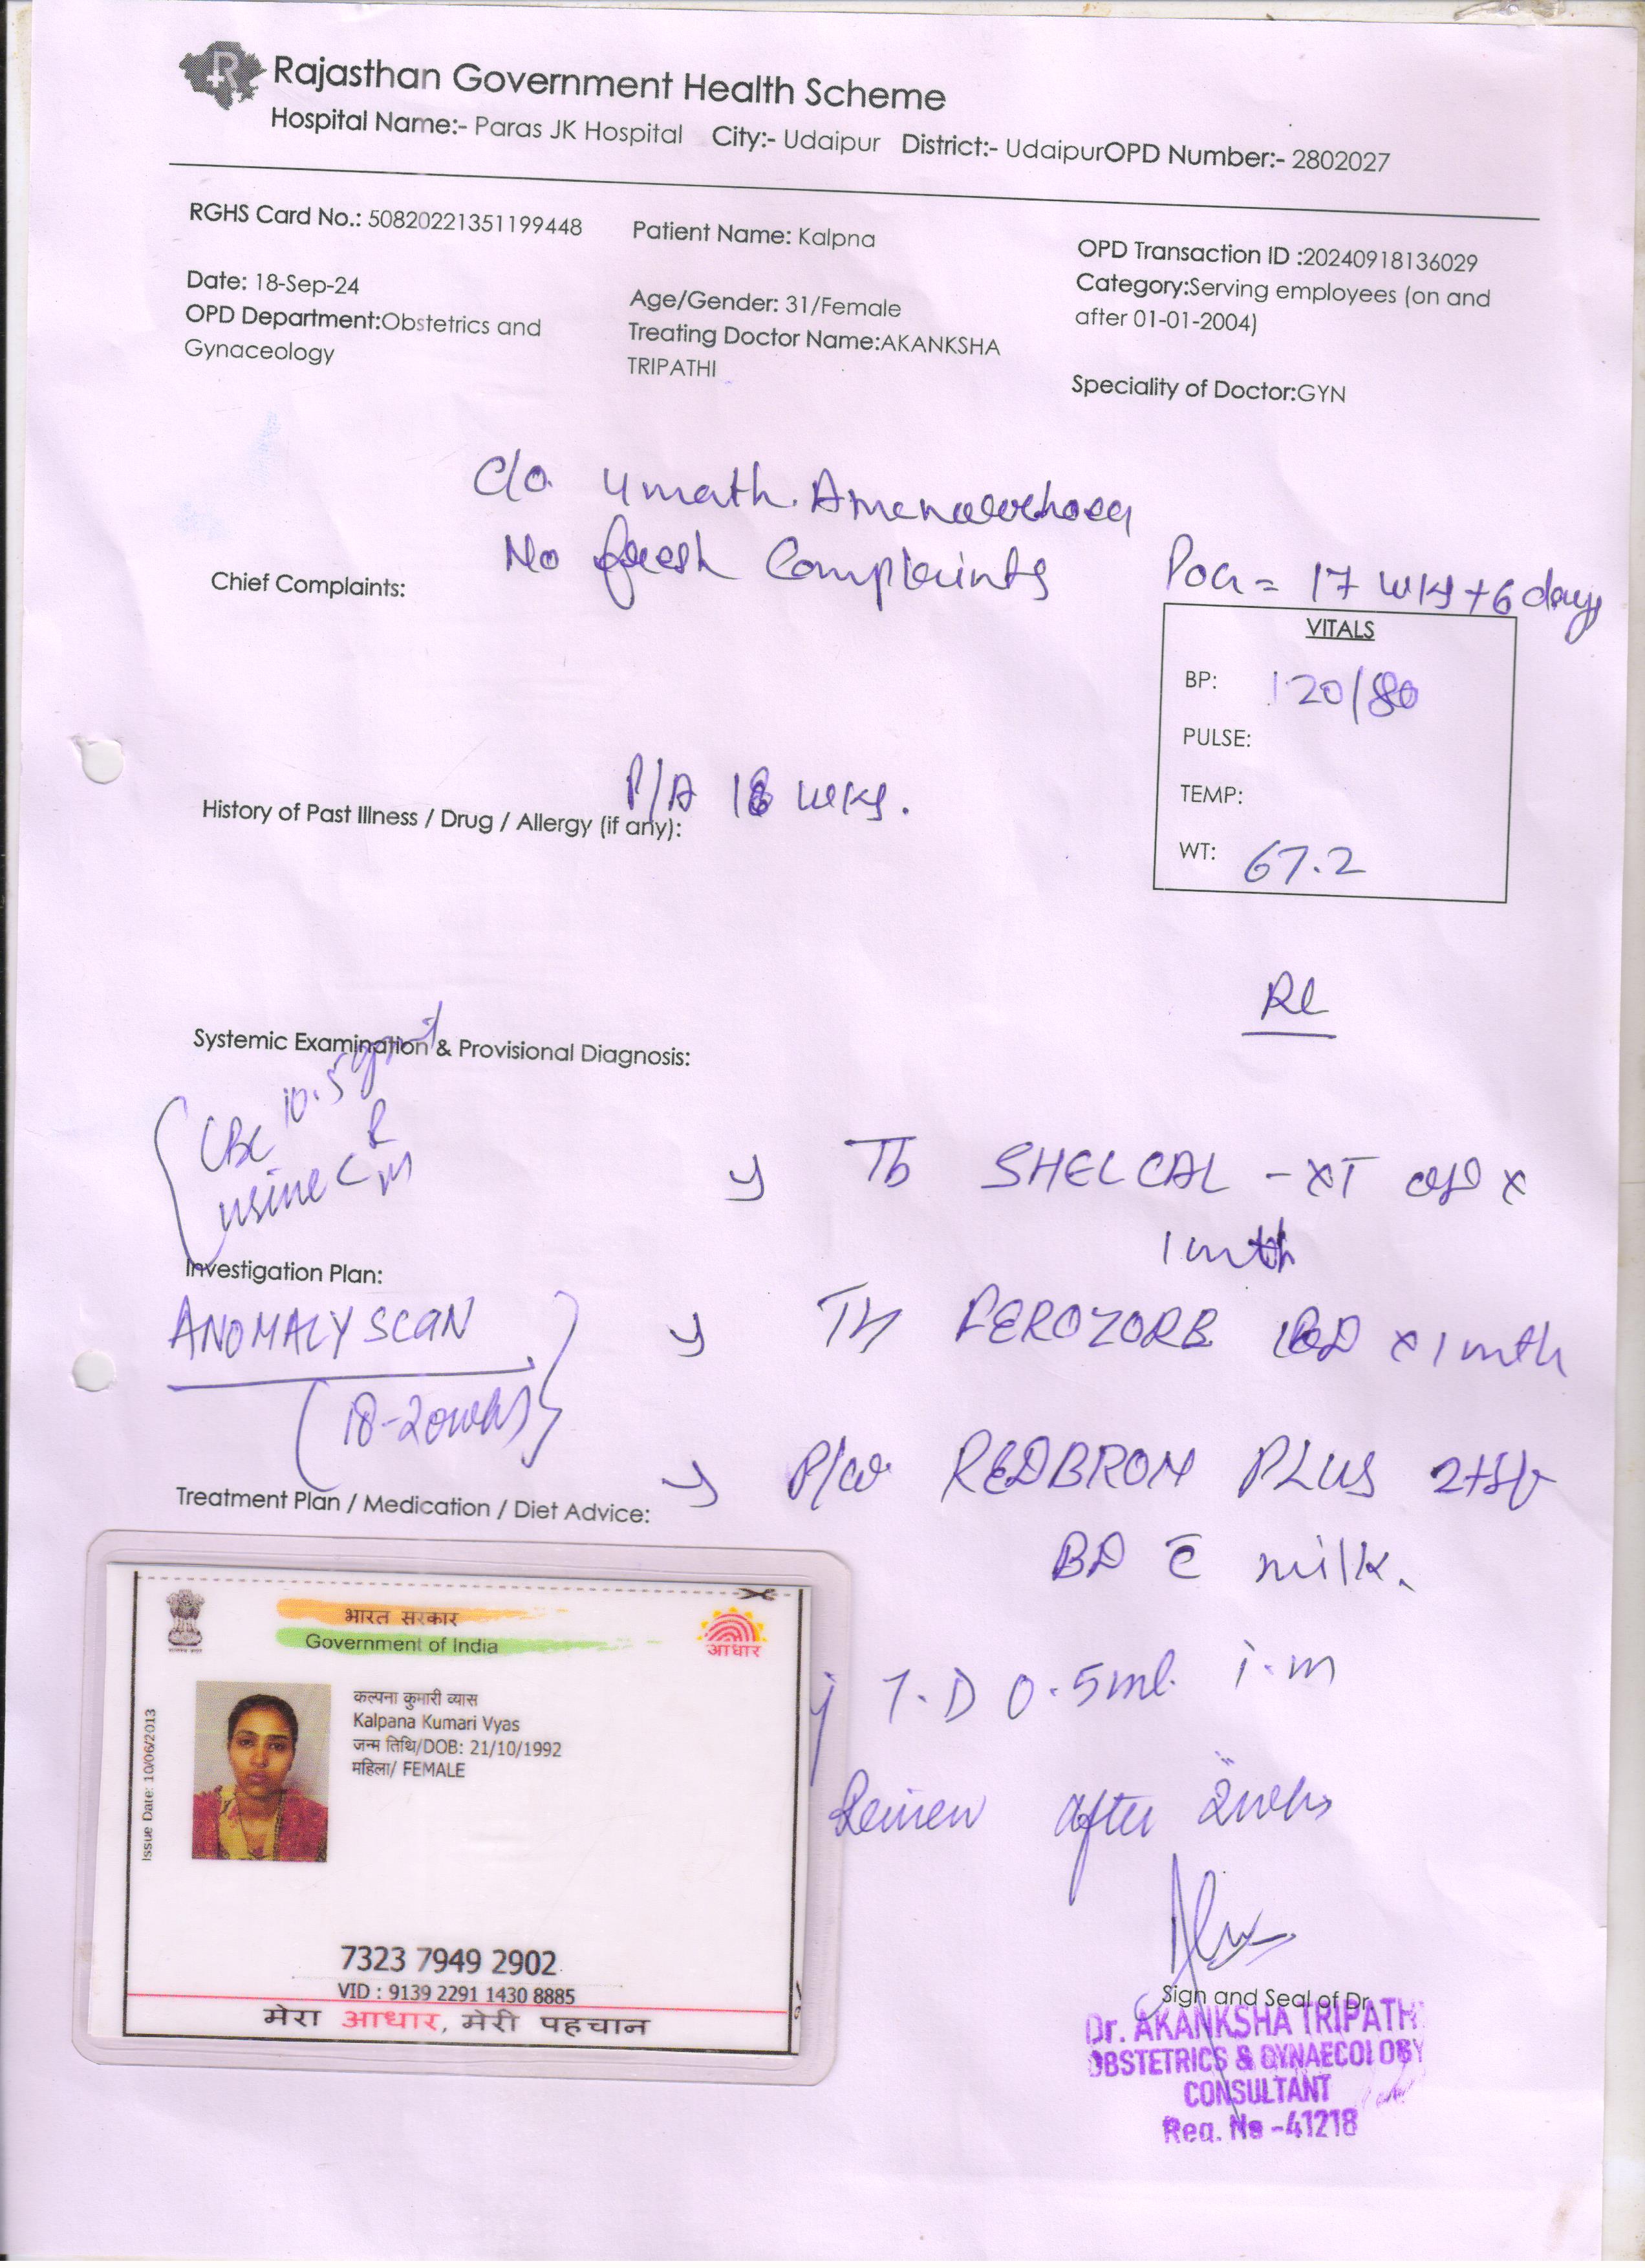 Rajasthan Government Health Scheme
Hospital Name:- Paras JK Hospital City:- Udaipur District:- UdaipurOPD Number:- 2802027
RGHS Card No.: 50820221351199448
Patient Name: Kalpna
OPD Transaction ID :20240918136029
Date: 18-Sep-24
Age/Gender: 31/Female
Category:Serving employees (on and
after 01-01-2004)
OPD Department:Obstetrics and
Gynaceology
Treating Doctor Name:AKANKSHA
TRIPATHI
Speciality of Doctor:GYN
C/o 4 month
No fresh Complaints
Chief Complaints:
POG = 17 wks+6 days
VITALS
BP: 120/80
PULSE:
TEMP:
WT: 67.2
P/A 18 wks.
History of Past Illness / Drug / Allergy (if any):
Systemic Examination & Provisional Diagnosis:
CBC 10.5
urine C R
M
Tb SHELCAL - XT OD x
1 mth
Investigation Plan:
ANOMALY SCAN
(18-20wks)
FEROZORB BD x 1 mth
P/w REDBRON PLUS 2tsf
BD c̄ milk.
Treatment Plan / Medication / Diet Advice:
T.D 0.5ml. i.m
Review after 2wks
भारत सरकार
Government of India
आधार
Issue Date: 10/06/2013
कल्पना कुमारी व्यास
Kalpana Kumari Vyas
जन्म तिथि/DOB: 21/10/1992
महिला/ FEMALE
7323 7949 2902
VID : 9139 2291 1430 8885
मेरा आधार, मेरी पहचान
Sign and Seal of Dr.
Dr. AKANKSHA TRIPATHI
OBSTETRICS & GYNAECOLOGY
CONSULTANT
Reg. No -41218